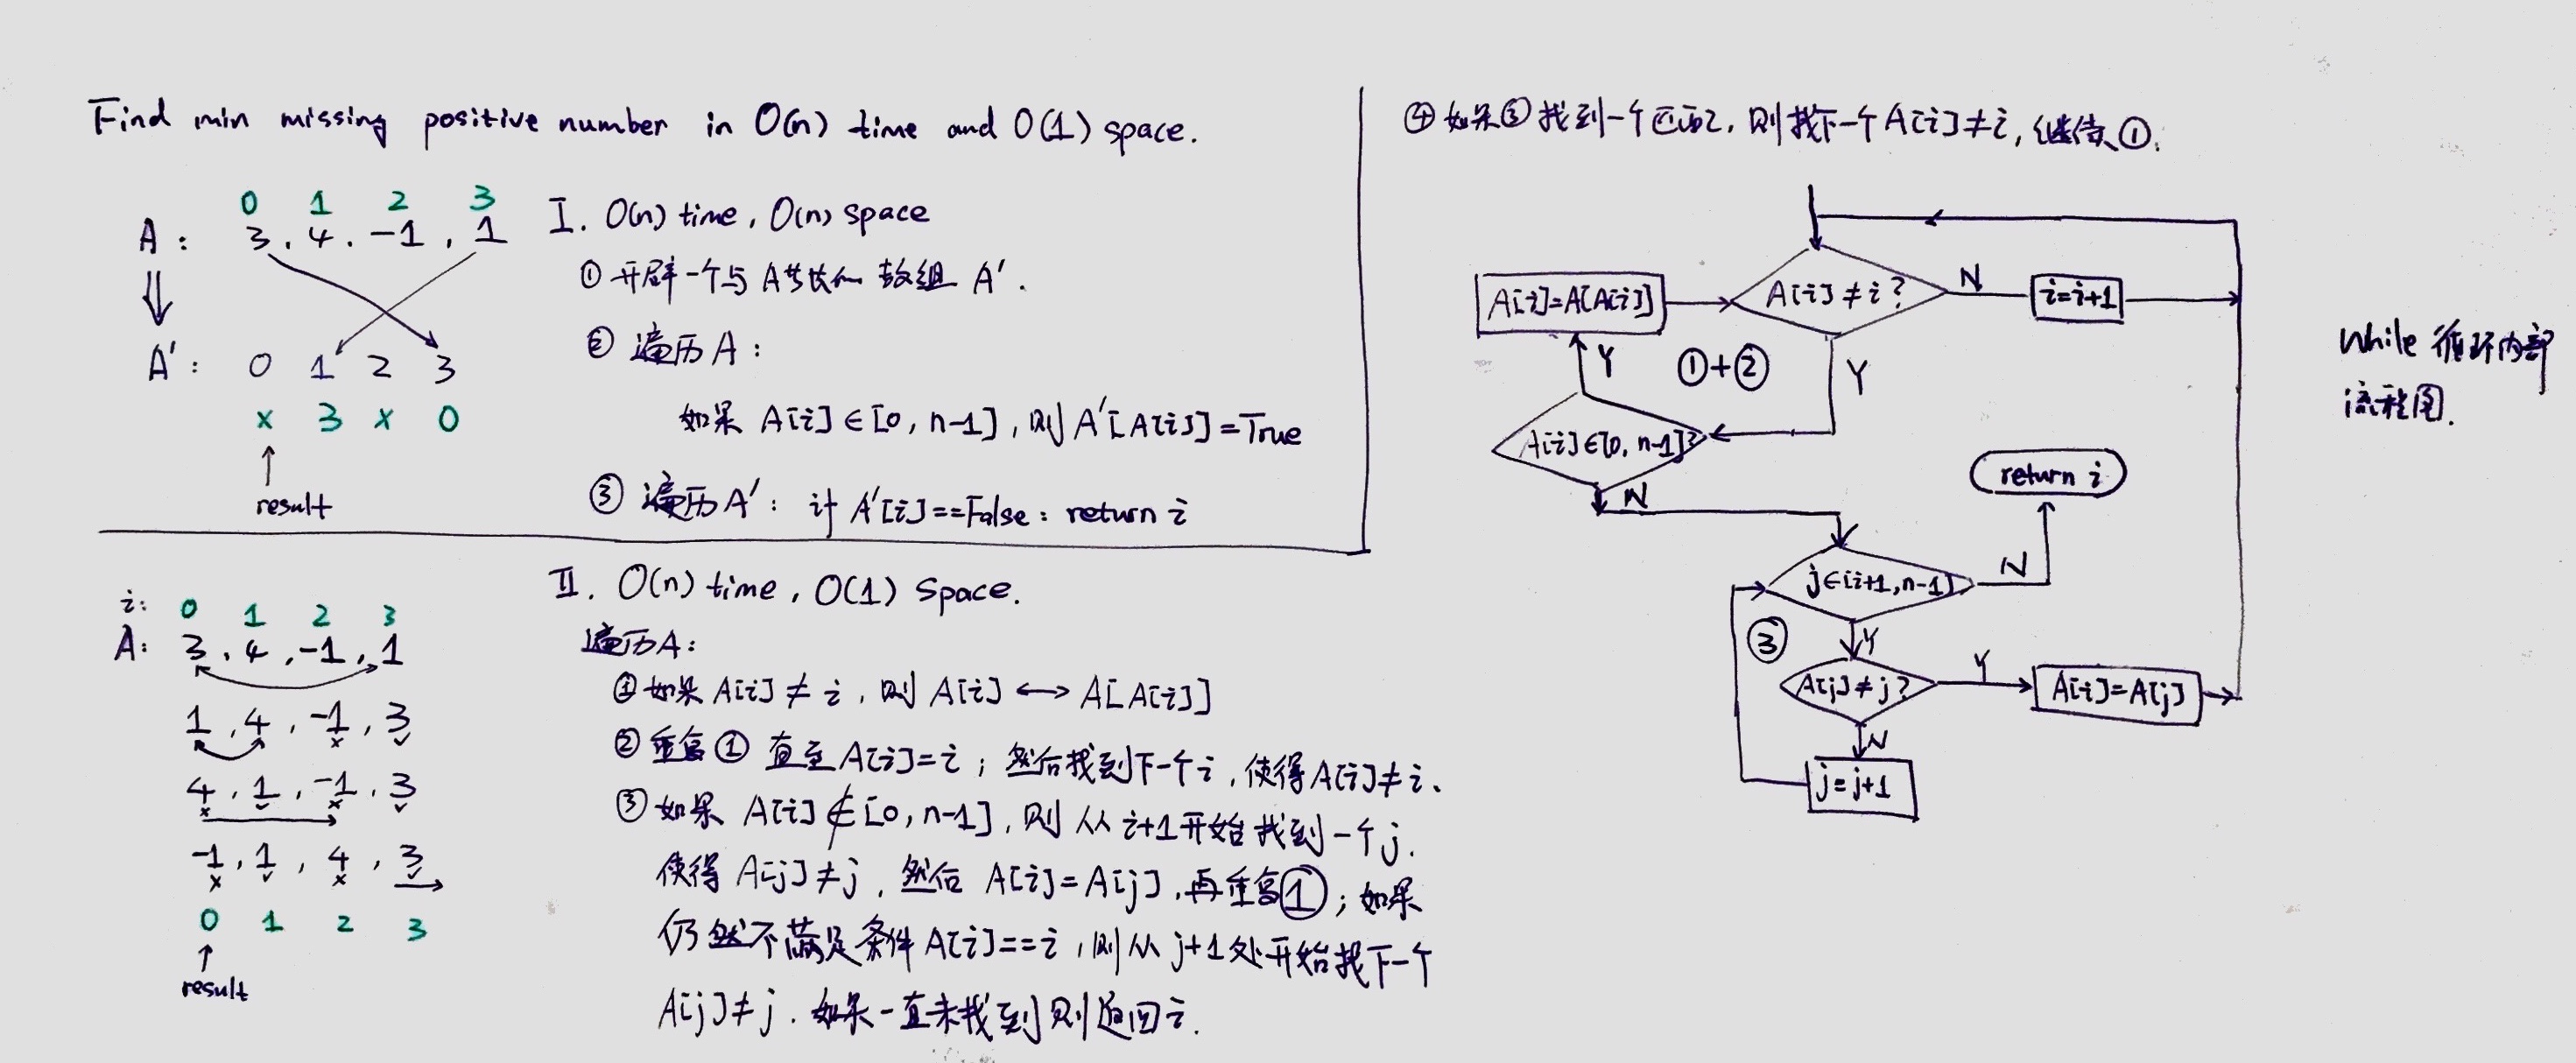 Find min missing positive number in O(n) time and O(1) space.
0 1 2 3
A: 3, 4, -1, 1
A': 0 1 2 3
x 3 x 0
↑
result
I. O(n) time, O(n) space
① 开辟一个与A等长的数组 A'.
② 遍历A:
如果 A[i]∈[0, n-1], 则 A'[A[i]]=True
③ 遍历A': if A'[i]==False: return i
i: 0 1 2 3
A: 3, 4, -1, 1
1, 4, -1, 3
4, 1, -1, 3
-1, 1, 4, 3
0 1 2 3
↑
result
II. O(n) time, O(1) space.
遍历A:
① 如果 A[i]≠i, 则 A[i]↔A[A[i]]
② 重复① 直至A[i]=i; 然后找到下一个i, 使得A[i]≠i.
③ 如果 A[i]∉[0, n-1], 则从i+1开始找到一个j.
使得 A[j]≠j, 然后 A[i]=A[j], 再重复①; 如果
仍然不满足条件A[i]==i, 则从j+1处开始找下一个
A[j]≠j. 如果一直未找到则返回i.
④ 如果③找到一个匹配, 则找下一个A[i]≠i, 继续①.
A[i]=A[A[i]]
A[i]≠i?
N
i=i+1
Y
①+②
Y
A[i]∈[0, n-1]?
N
return i
j∈[i+1, n-1]
N
③
Y
A[j]≠j?
Y
A[i]=A[j]
N
j=j+1
While 循环内部
流程图.